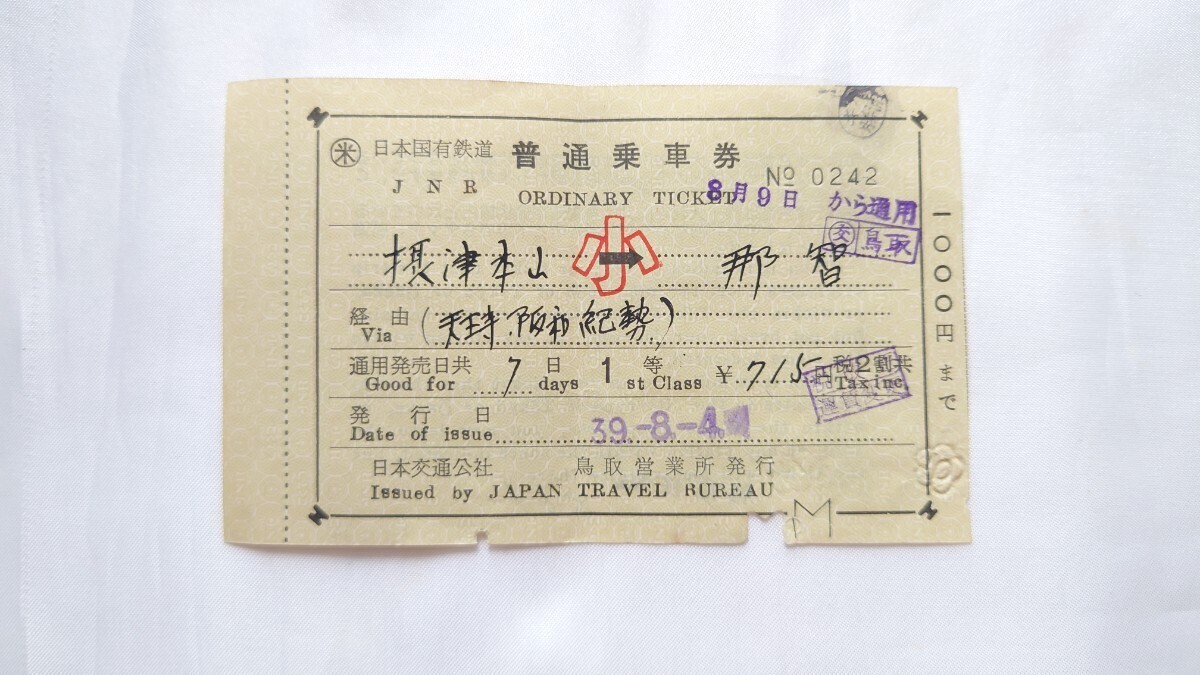 米 日本国有鉄道 普通乗車券
JNR ORDINARY TICKET № 0242
8月9日 から通用
交 鳥取
摂津本山 小 → 那智
経由 (天王寺.阪和.紀勢)
Via
通用発売日共 7 日 1 等 ¥715円 税2割共
Good for days st Class Tax inc.
発行日 39.-8.-4
Date of issue
日本交通公社 鳥取営業所発行
Issued by JAPAN TRAVEL BUREAU
一〇〇〇円まで